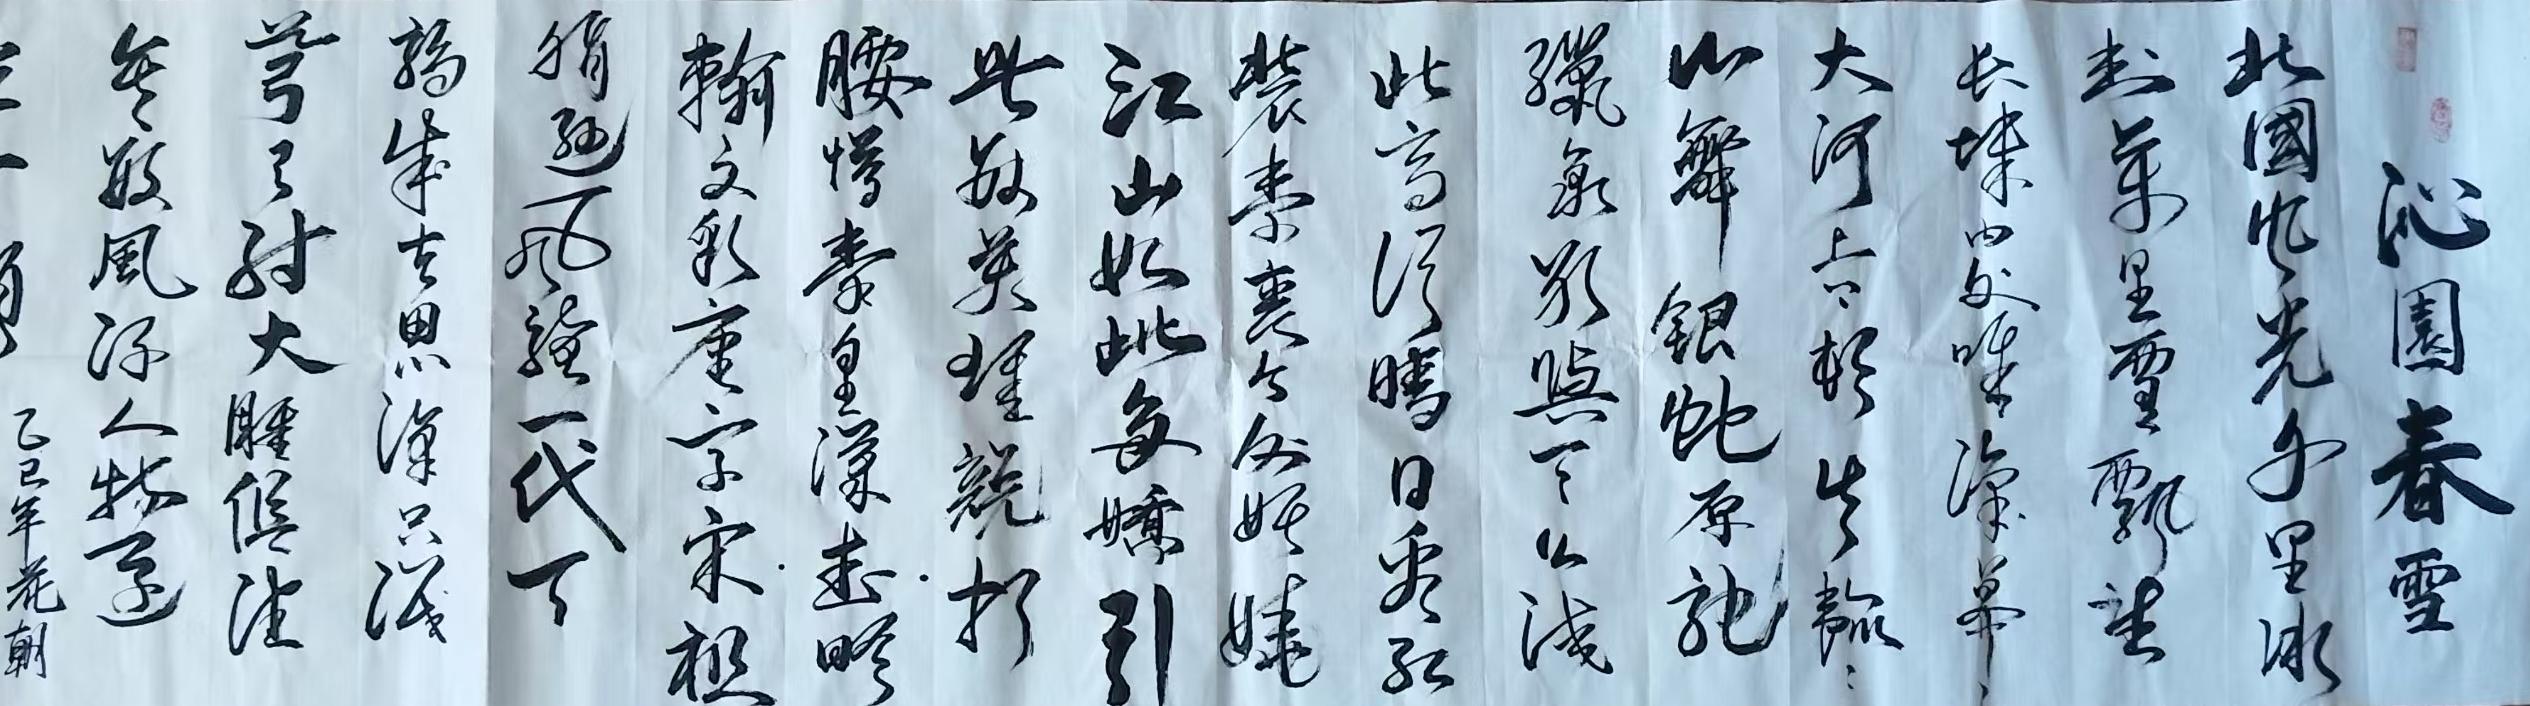 沁園春雪
北國風光千里冰
封萬里雪飄望
长城内外唯餘莽々
大河上下頓失滔々
山舞銀蛇原馳
蠟象欲與天公試
比高須晴日看紅
裝素裹分外妖嬈
江山如此多嬌引
無數英雄競折
腰惜秦皇漢武略
輸文彩唐宗宋祖
稍遜風騷一代天
驕成吉思汗只識
彎弓射大雕俱往
矣數風流人物還
乙巳年花朝